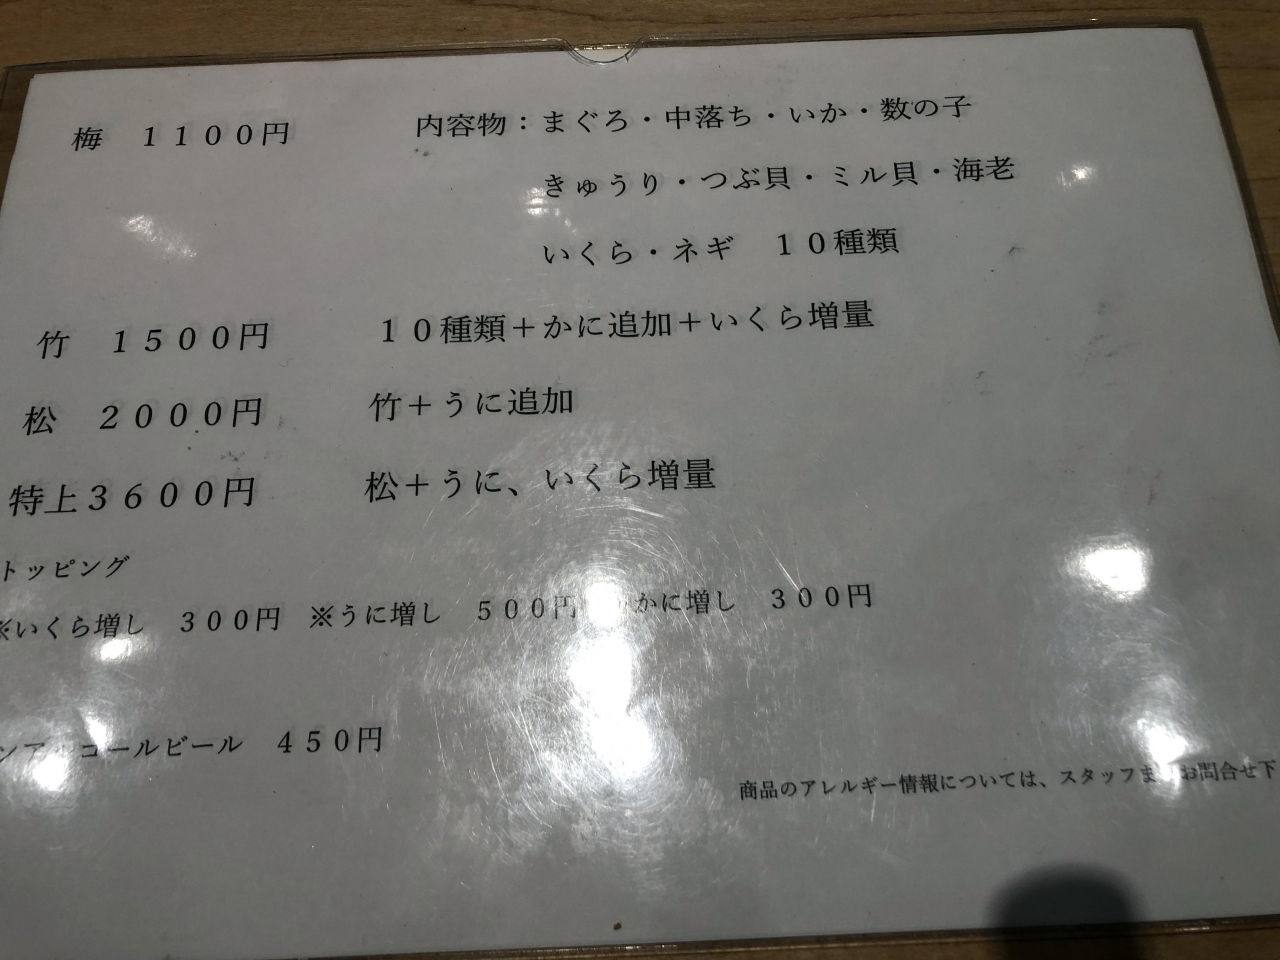 梅　１１００円　内容物：まぐろ・中落ち・いか・数の子
きゅうり・つぶ貝・ミル貝・海老
いくら・ネギ　１０種類
竹　１５００円　１０種類＋かに追加＋いくら増量
松　２０００円　竹＋うに追加
特上３６００円　松＋うに、いくら増量
トッピング
※いくら増し　３００円　※うに増し　５００円　かに増し　３００円
ンアルコールビール　４５０円
商品のアレルギー情報については、スタッフまでお問合せ下